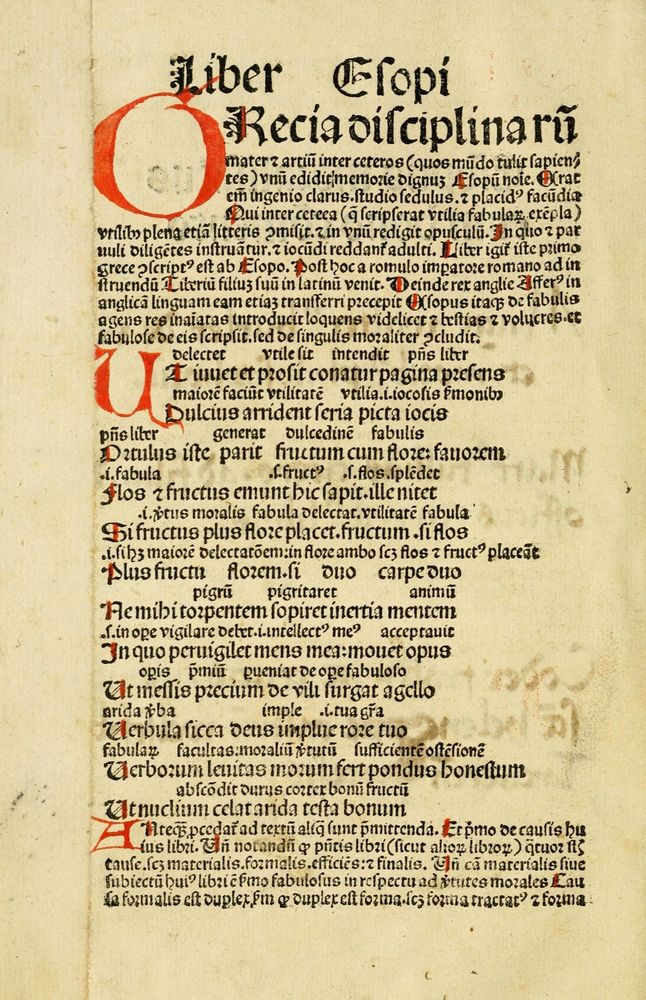 Liber Esopi
GRecia disciplinarū
mater ⁊ artiū inter ceteros (quos mūdo tulit sapien
tes) vnū edidit memorie dignuʒ Esopū noīe. Erat
em̄ ingenio clarus. studio sedulus. ⁊ placidꝰ facūdia
Qui inter ceteca (q̄ scripserat vtilia fabulaꝝ. exēpla)
vtilibꝰ plena etiā litteris ꝯmisit. ⁊ in vnū redigit opusculū. In quo ⁊ par
uuli diligētes instruātur. ⁊ iocūdi reddant̄ adulti. Liber igit̄ iste primo
grece ꝯscriptꝰ est ab Esopo. Post hoc a romulo imꝑatore romano ad in
struendū Tiberiū filiuʒ suū in latinū venit. Deinde rex anglie Afferꝰ in
anglicā linguam eam etiaʒ transferri precepit Esopus itaqʒ de fabulis
agens res inaīatas introducit loquens videlicet ⁊ bestias ⁊ volucres. et
fabulose de eis scripsit. sed de singulis moraliter ꝯcludit.
delectet vtile sit intendit pn̄s liber
UT iuuet et prosit conatur pagina presens
maiorē faciūt vtilitatē vtilia .i. iocosis ẜmonibꝰ
Dulcius arrident seria picta iocis
pn̄s liber generat dulcedinē fabulis
Ortulus iste parit fructum cum flore: fauorem
.i. fabula .s. fructꝰ .s. flos. splēdet
Flos ⁊ fructus emunt hic sapit. ille nitet
.i. v̓tus moralis fabula delectat. vtilitatē fabula
Si fructus plus flore placet. fructum. si flos
.i. si hʒ maiorē delectatōem: in flore ambo scʒ flos ⁊ fructꝰ placeāt
Plus fructu florem. si duo carpe duo
pigrū pigritaret animū
Ne mihi torpentem sopiret inertia mentem
.s. in oꝑe vigilare debet .i. intellectꝰ meꝰ acceptauit
In quo peruigilet mens mea: mouet opus
oꝑis p̄miū ꝓueniat de oꝑe fabuloso
Ut messis precium de vili surgat agello
arida v̓ba imple .i. tua gr̄a
Uerbula sicca deus implue rore tuo
fabulaꝝ facultas: moraliū v̓tutū sufficientē ostēsionē
Uerborum leuitas morum fert pondus honestum
abscōdit durus cortex bonū fructū
Ut nuclium celat arida testa bonum
ANteqʒ ꝓcedat̄ ad textū aliqʒ sunt p̄mittenda. Et p̄mo de causis hu
ius libri. Un̄ notandū ꝙ pn̄tis libri (sicut alioꝝ libroꝝ) q̄tuor st̄
cause. scʒ materialis. formalis. efficiēs: ⁊ finalis. Un̄ cā materialis siue
subiectū huiꝰ libri ē ẜmo fabulosus in respectu ad v̓tutes morales Cau
sa formalis est duplex, ẜm ꝙ duplex est forma. scʒ forma tractatꝰ ⁊ forma